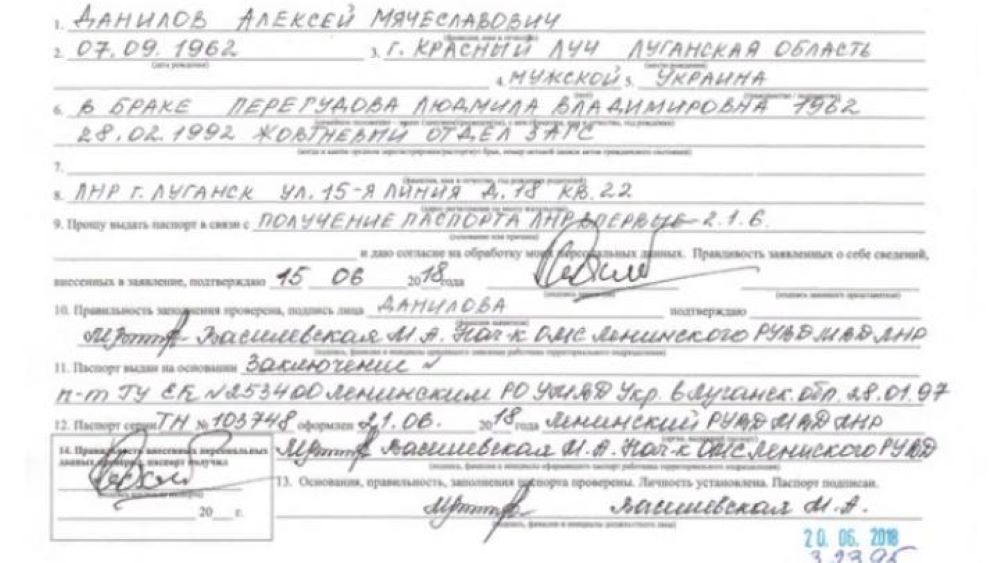 1. ДАНИЛОВ АЛЕКСЕЙ МЯЧЕСЛАВОВИЧ
(фамилия, имя и отчество)
2. 07.09.1962 3. г. КРАСНЫЙ ЛУЧ ЛУГАНСКАЯ ОБЛАСТЬ
(дата рождения) (место рождения)
4. МУЖСКОЙ 5. УКРАИНА
(пол)
6. В БРАКЕ ПЕРЕГУДОВА ЛЮДМИЛА ВЛАДИМИРОВНА 1962
28.02.1992 ЖОВТНЕВЫЙ ОТДЕЛ ЗАГС
7.
8. ЛНР г. ЛУГАНСК УЛ. 15-Я ЛИНИЯ Д. 18 КВ. 22
9. Прошу выдать паспорт в связи с ПОЛУЧЕНИЕ ПАСПОРТА ЛНР ВПЕРВЫЕ 2.1.6.
и даю согласие на обработку моих персональных данных. Правдивость заявленных о себе сведений,
внесенных в заявление, подтверждаю 15 06 2018 года
10. Правильность заполнения проверена, подпись лица ДАНИЛОВА подтверждаю
Василевская М.А. Нач-к ОМС Ленинского РУВД МВД ЛНР
11. Паспорт выдан на основании Заключение №
п-т ТУ ЕК №253400 Ленинским РО УМВД Укр. в Луганск. обл. 28.01.97
12. Паспорт серии ТН № 103748 оформлен 21.06. 2018 года Ленинский РУВД МВД ЛНР
14. Правильность внесенных персональных
данных проверил, паспорт получил
Василевская М.А. Нач-к ОМС Лениского РУВД
13. Основания, правильность, заполнения паспорта проверены. Личность установлена. Паспорт подписан.
20 г.
Василевская М.А.
20.06.2018